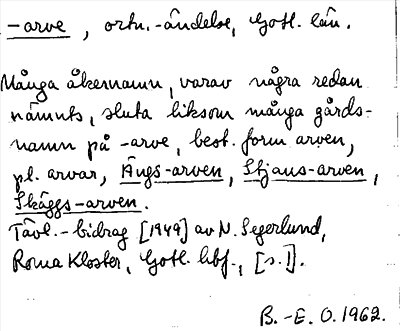 -arve, ortn.-ändelse, Gotl. län.
Många åkernamn, varav några redan
nämnts, sluta liksom många gårds-
namn på -arve, best. form arven,
pl. arvar, Ängs-arven, Stjaus-arven,
Skäggs-arven.
Tävl.-bidrag [1949] av N. Segerlund,
Roma Kloster, Gotl. hbf., [s.1].
B.-E. O. 1962.